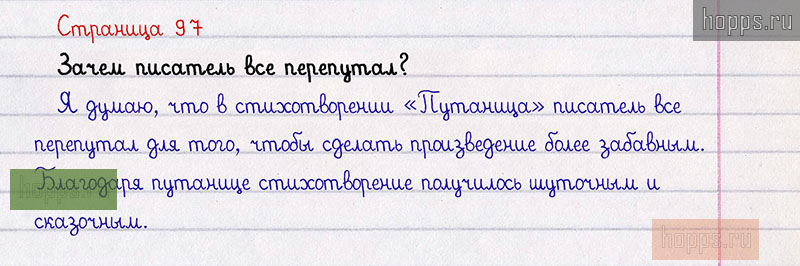 Страница 97
hopps.ru
Зачем писатель все перепутал?
Я думаю, что в стихотворении «Путаница» писатель все
перепутал для того, чтобы сделать произведение более забавным.
Благодаря путанице стихотворение получилось шуточным и
hopps.ru
сказочным.
hopps.ru